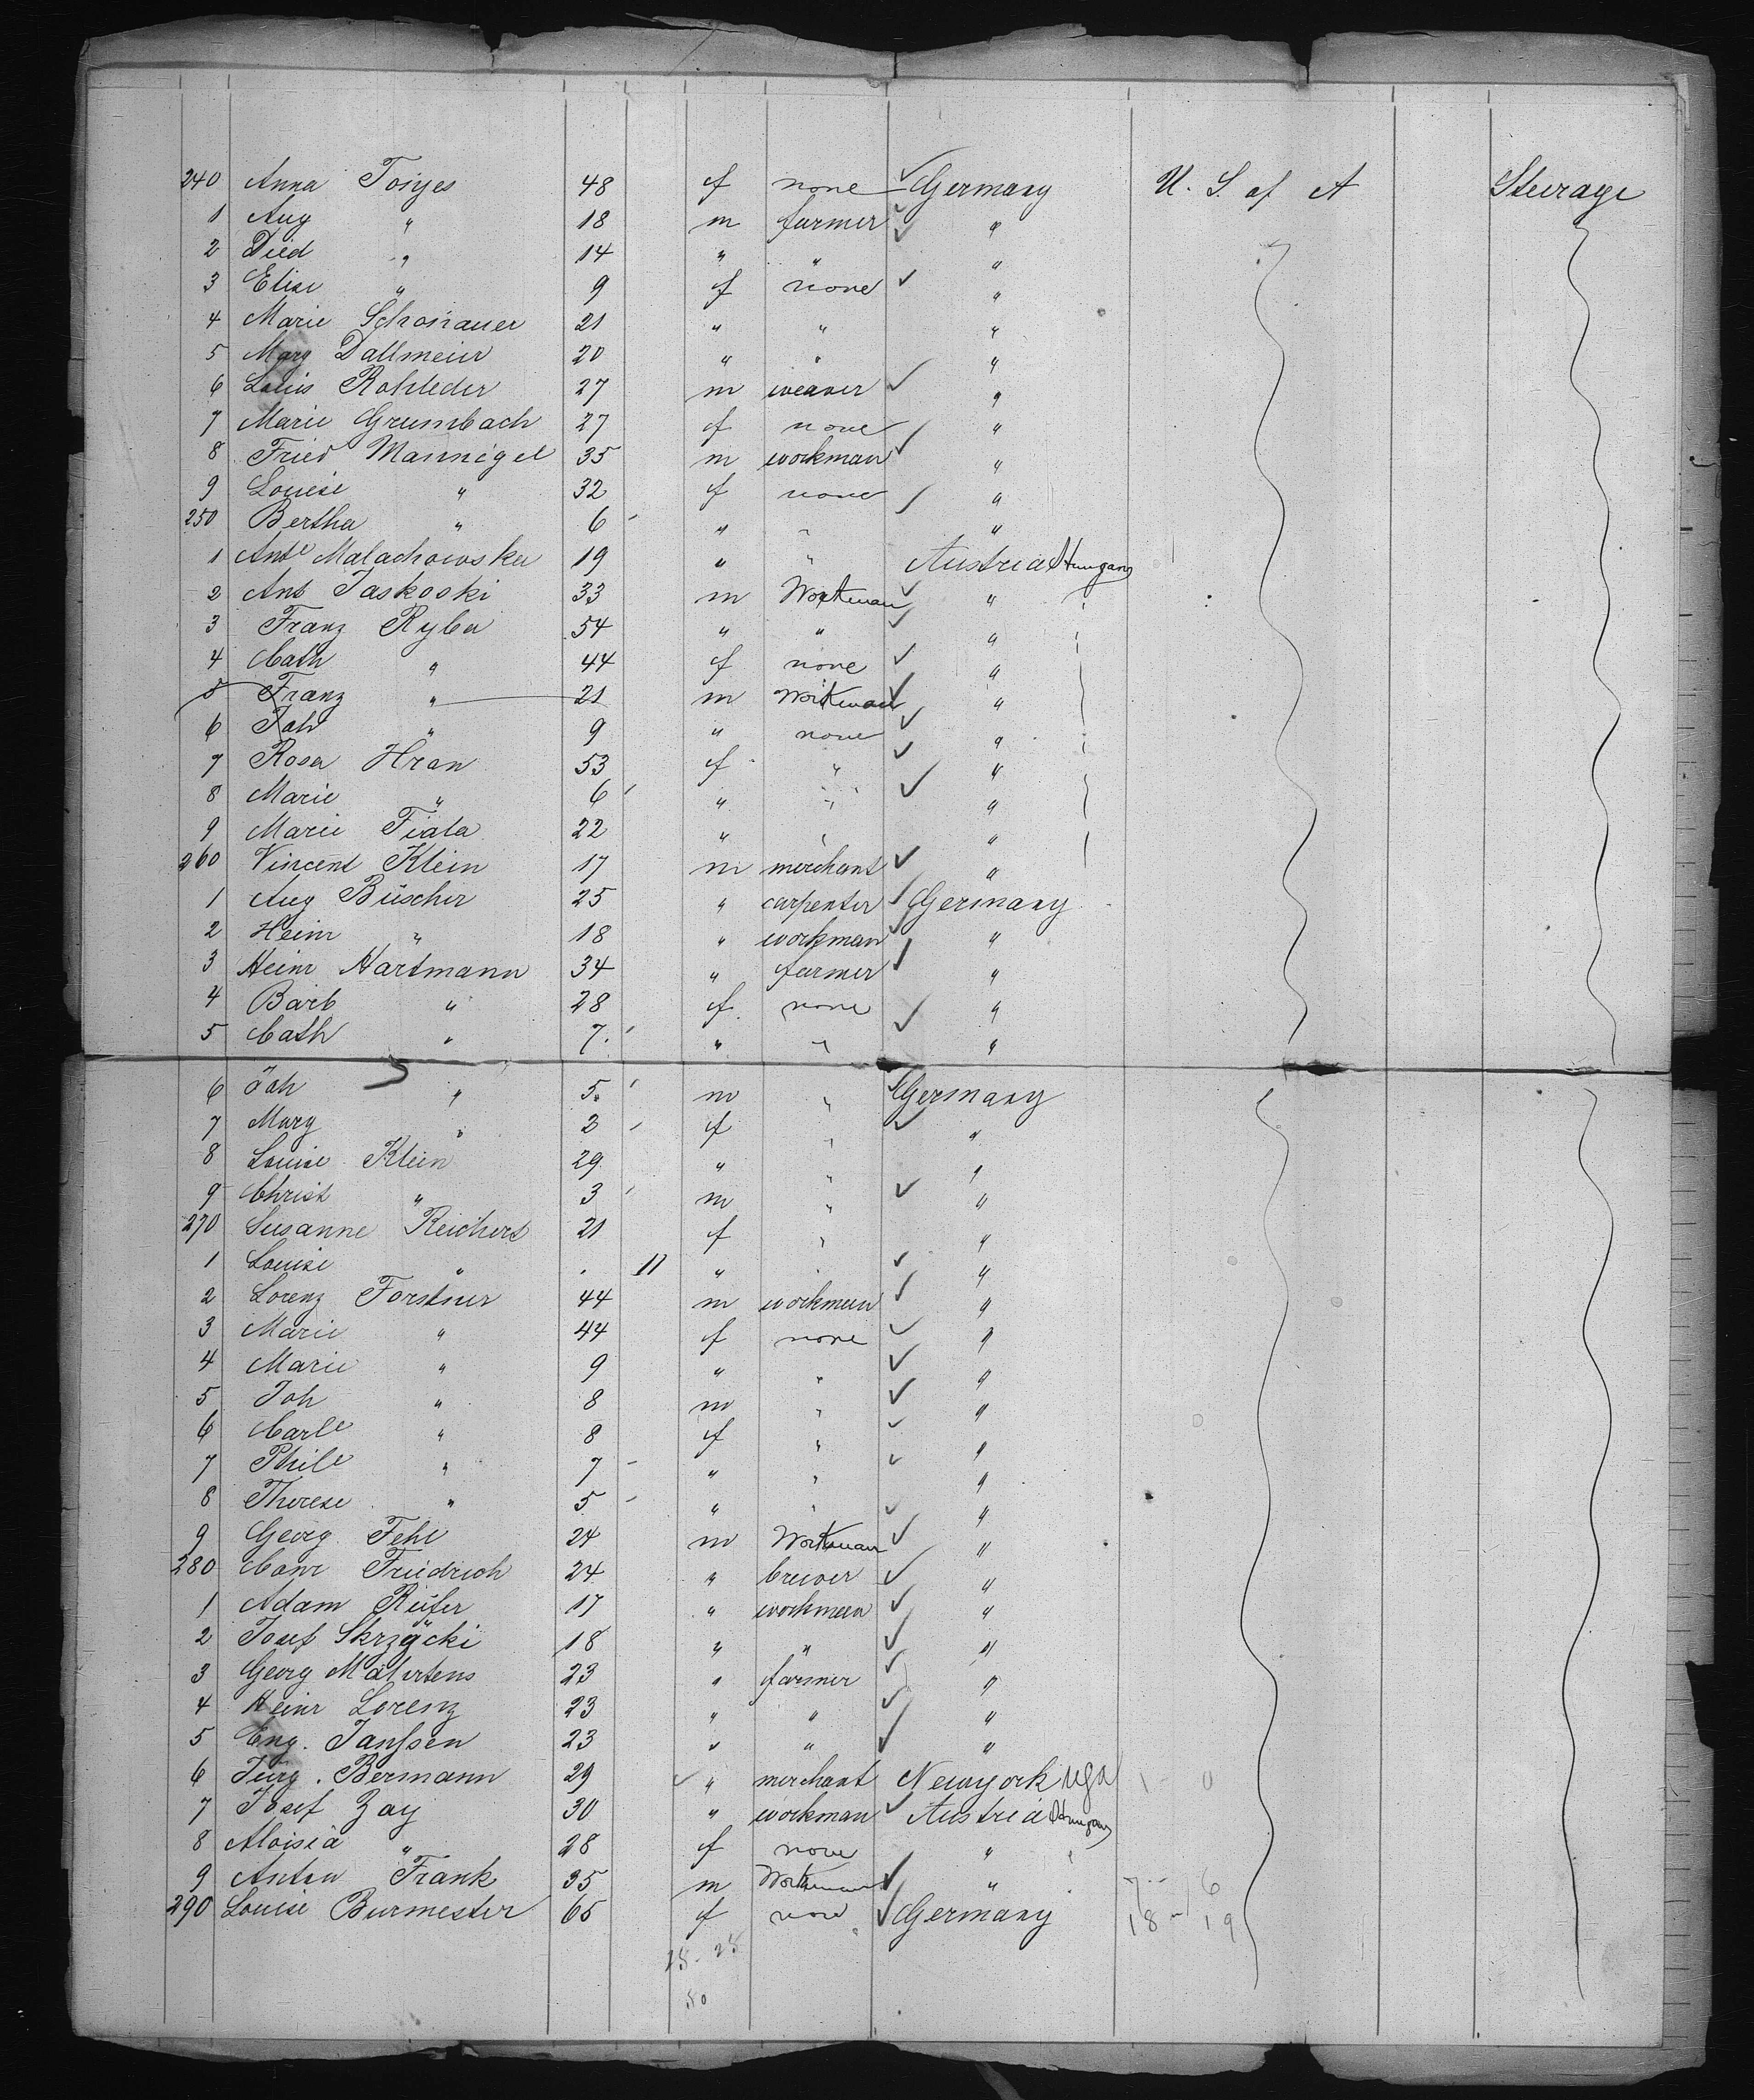 240 Anna Tönjes 48 f none Germany U. S. of A Steerage
1 Aug " 18 m farmer "
2 Died " 14 " " "
3 Elise " 9 f none "
4 Marie Schonauer 21 " " "
5 Marg Dallmeier 20 " " "
6 Louis Rohleder 27 m weaver "
7 Marie Grumbach 27 f none "
8 Fried Mannigel 35 m workman "
9 Louise " 32 f none "
250 Bertha " 6 " " "
1 Ante Malachowska 19 " " Austria Hungary
2 Ant Jaskoski 33 m Workman "
3 Franz Ryba 54 " " "
4 Cath " 44 f none "
5 Franz " 21 m Workman "
6 Joh " 9 " none "
7 Rosa Hran 53 f " "
8 Marie " 6 " " "
9 Marie Fiala 22 " " "
260 Vincent Klein 17 m merchant "
1 Aug Büscher 25 " carpenter Germany
2 Heinr " 18 " workman "
3 Heinr Hartmann 34 " farmer "
4 Barb " 28 f none "
5 Cath " 7 " " "
6 Joh " 5 m " Germany
7 Marg " 3 f " "
8 Louise Klein 29 " " "
9 Christ " 3 m " "
270 Susanne Reichert 21 f " "
1 Louise " 11 " " "
2 Lorenz Forstner 44 m workman "
3 Marie " 44 f none "
4 Marie " 9 " " "
5 Joh " 8 m " "
6 Carle " 8 f " "
7 Phile " 7 " " "
8 Therese " 5 " " "
9 Georg Fehl 24 m Workman "
280 Conr Friedrich 24 " brewer "
1 Adam Reifer 17 " workman "
2 Josef Skrzycki 18 " " "
3 Georg Mahrtens 23 " farmer "
4 Heinr Lorenz 23 " " "
5 Eng. Janssen 23 " " "
6 Jürg. Bermann 29 " merchant Newyork USA
7 Josef Zay 30 " workman Austria Hungary
8 Aloisia " 28 f none "
9 Anton Frank 35 m Workman "
290 Louise Burmester 65 f none Germany
7 - 6
18 - 19
25 - 25
50